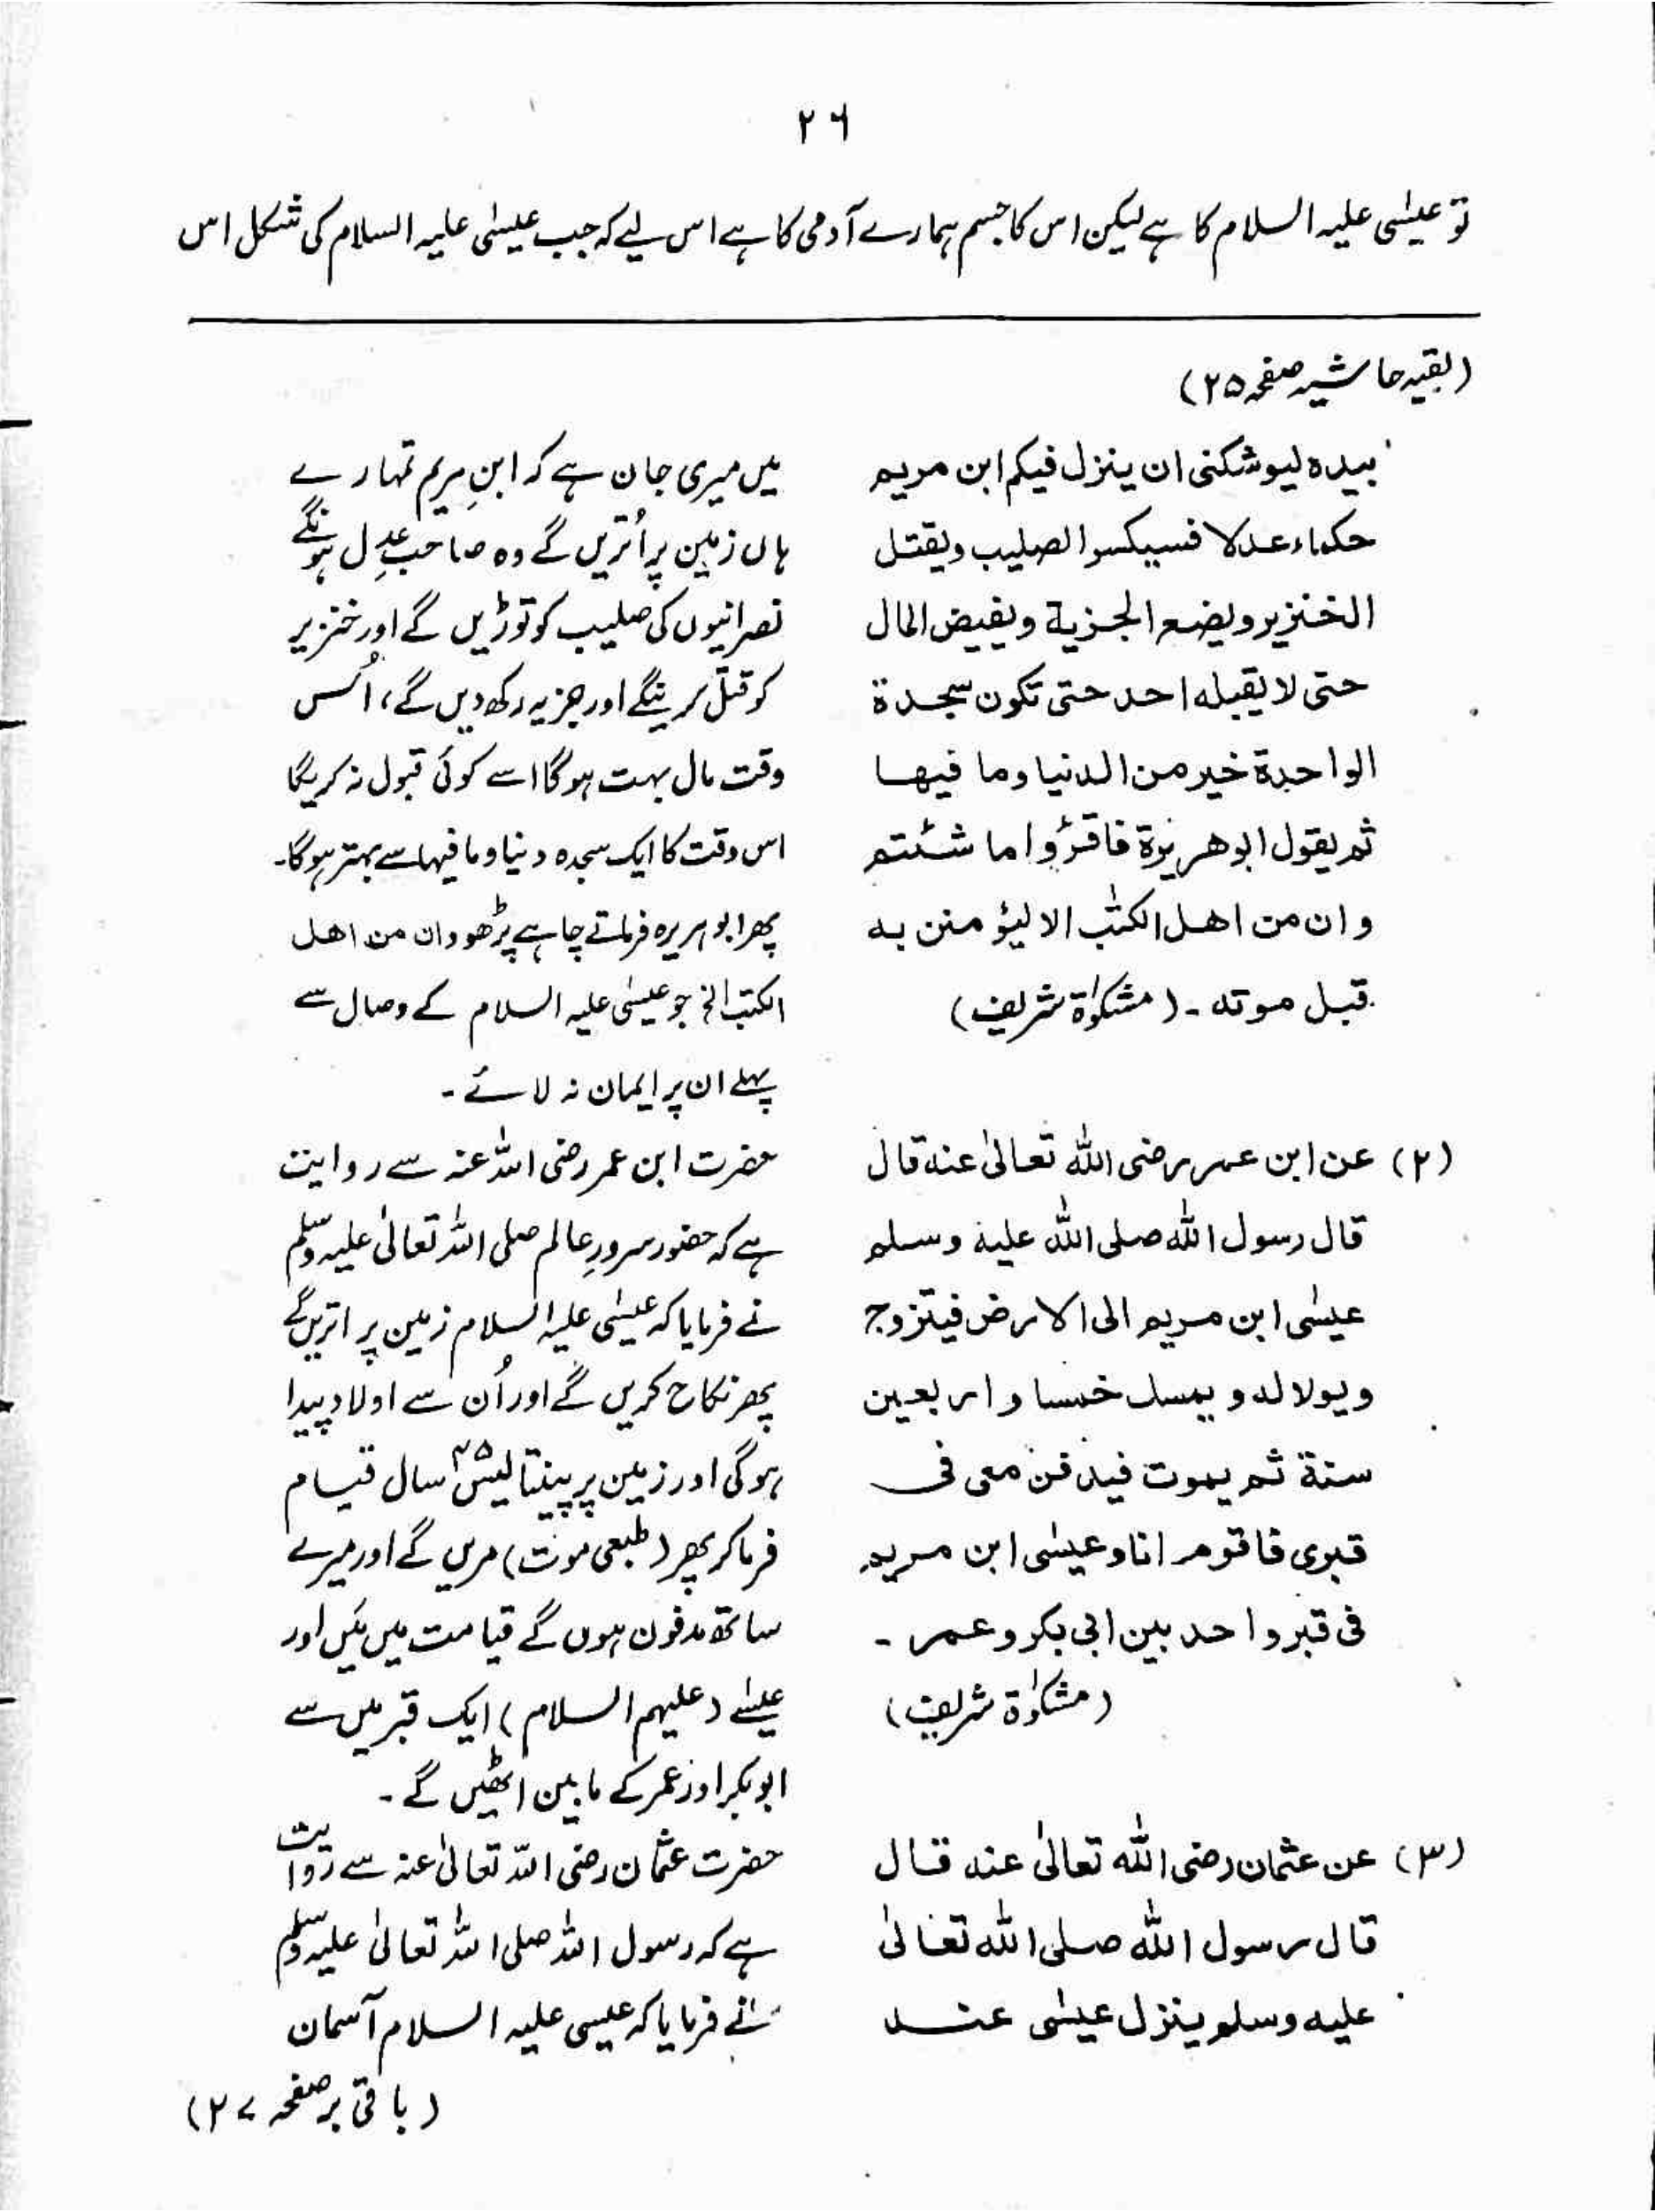 ۲۶
تو عیسٰی علیہ السلام کا ہے لیکن اس کا جسم ہمارے آدمی کا ہے اس لیے کہ جب عیسٰی علیہ السلام کی شکل اس
(بقیہ حاشیہ صفحہ ۲۵)
بیدہ لیوشکنی ان ینزل فیکم ابن مریم
حکماء عدلا فسیکسوا الصلیب ویقتل
الخنزیر ویضع الجزیة ویفیض المال
حتی لا یقبله احد حتی تکون سجدة
الواحدة خیر من الدنیا وما فیها
ثم یقول ابوهریرة فاقرؤا ما شئتم
وان من اهل الکتٰب الا لیؤمنن به
قبل موته ۔ (مشکوٰة شریف)
میں میری جان ہے کہ ابنِ مریم تمہارے
ہاں زمین پر اُتریں گے وہ صاحبِ عدل ہونگے
نصرانیوں کی صلیب کو توڑیں گے اور خنزیر
کو قتل کرینگے اور جزیہ رکھ دیں گے، اُس
وقت مال بہت ہوگا اسے کوئی قبول نہ کریگا
اس وقت کا ایک سجدہ دنیا و ما فیہا سے بہتر ہوگا۔
پھر ابوہریرہ فرماتے چاہے پڑھو وان من اهل
الکتب الخ جو عیسٰی علیہ السلام کے وصال سے
پہلے ان پر ایمان نہ لائے ۔
(۲) عن ابن عمر رضی الله تعالیٰ عنه قال
قال رسول الله صلی الله علیه وسلم
عیسٰی ابن مریم الی الارض فیتزوج
ویولا له و یمسك خمسا واربعین
سنة ثم یموت فیدفن معی فی
قبری فاقوم انا وعیسٰی ابن مریم
فی قبر واحد بین ابی بکر وعمر ۔
(مشکوٰة شریف)
حضرت ابن عمر رضی اللہ عنہ سے روایت
ہے کہ حضور سرورِ عالم صلی اللہ تعالیٰ علیہ وسلم
نے فرمایا کہ عیسٰی علیہ السلام زمین پر اتریں گے
پھر نکاح کریں گے اور اُن سے اولاد پیدا
ہوگی اور زمین پر پینتالیس ۴۵ سال قیام
فرما کر پھر (طبعی موت) مریں گے اور میرے
ساتھ مدفون ہوں گے قیامت میں میَں اور
عیسٰے (علیہم السلام) ایک قبر میں سے
ابوبکر اور عمر کے مابین اٹھیں گے ۔
(۳) عن عثمان رضی الله تعالیٰ عنه قال
قال رسول الله صلی الله تعالیٰ
علیه وسلم ینزل عیسٰی عند
حضرت عثمان رضی اللہ تعالیٰ عنہ سے روایت
ہے کہ رسول اللہ صلی اللہ تعالیٰ علیہ وسلم
نے فرمایا کہ عیسی علیہ السلام آسمان
(باقی بر صفحہ ۲۷)